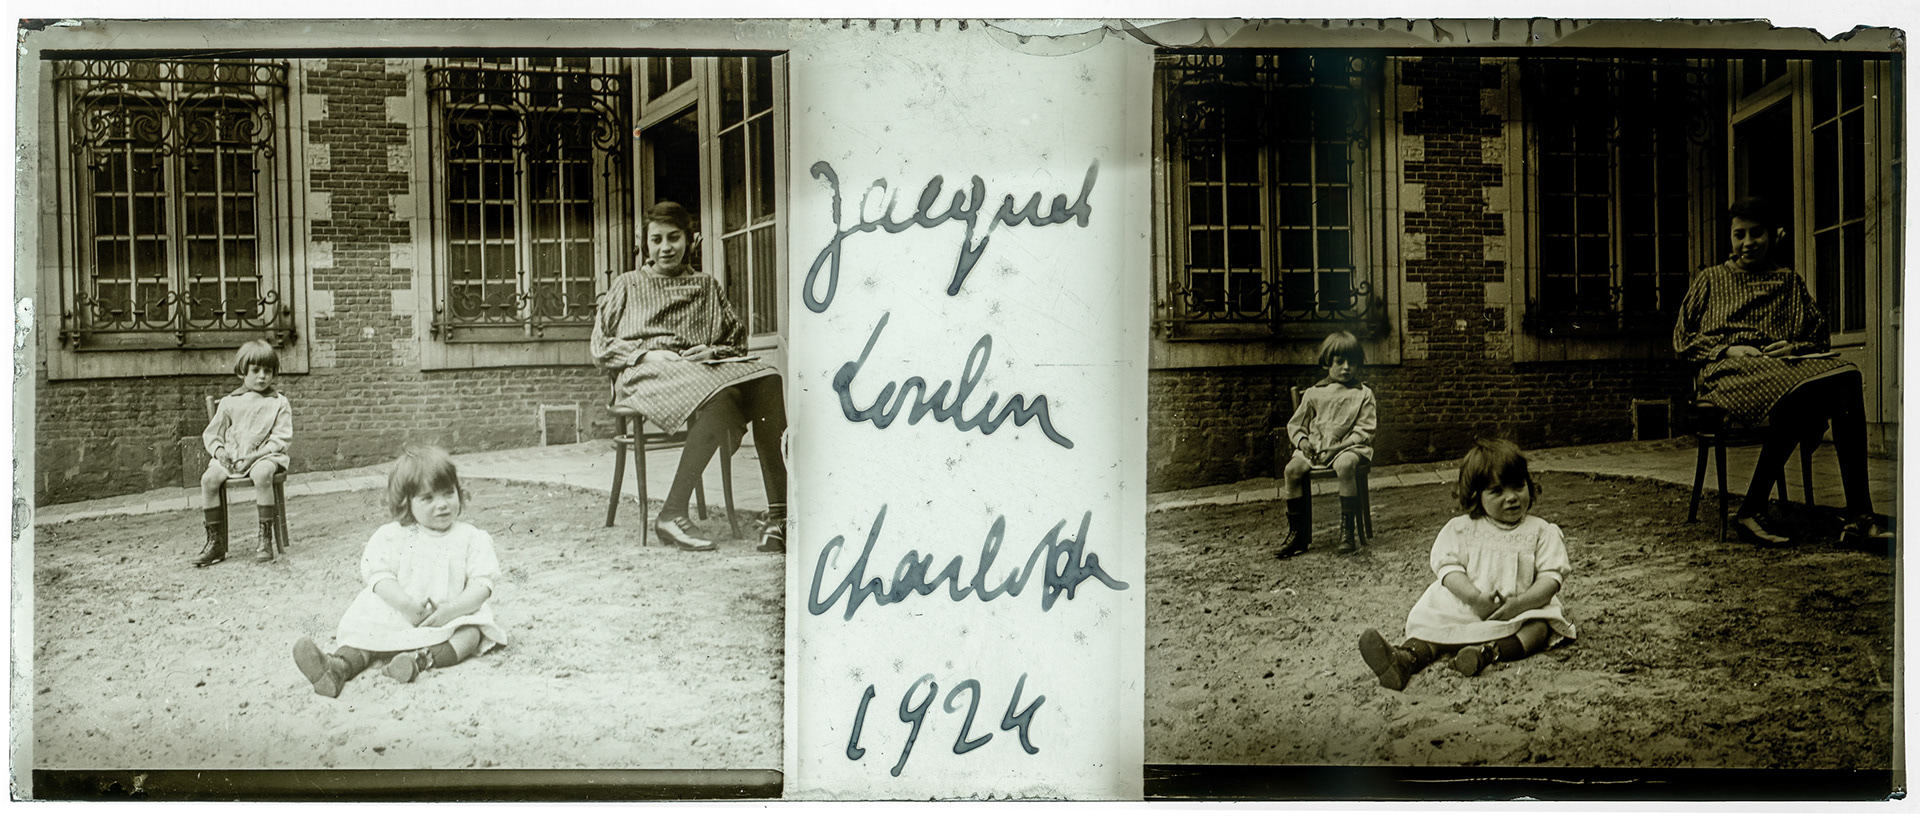 Jacques
Loulou
Charlotte
1924